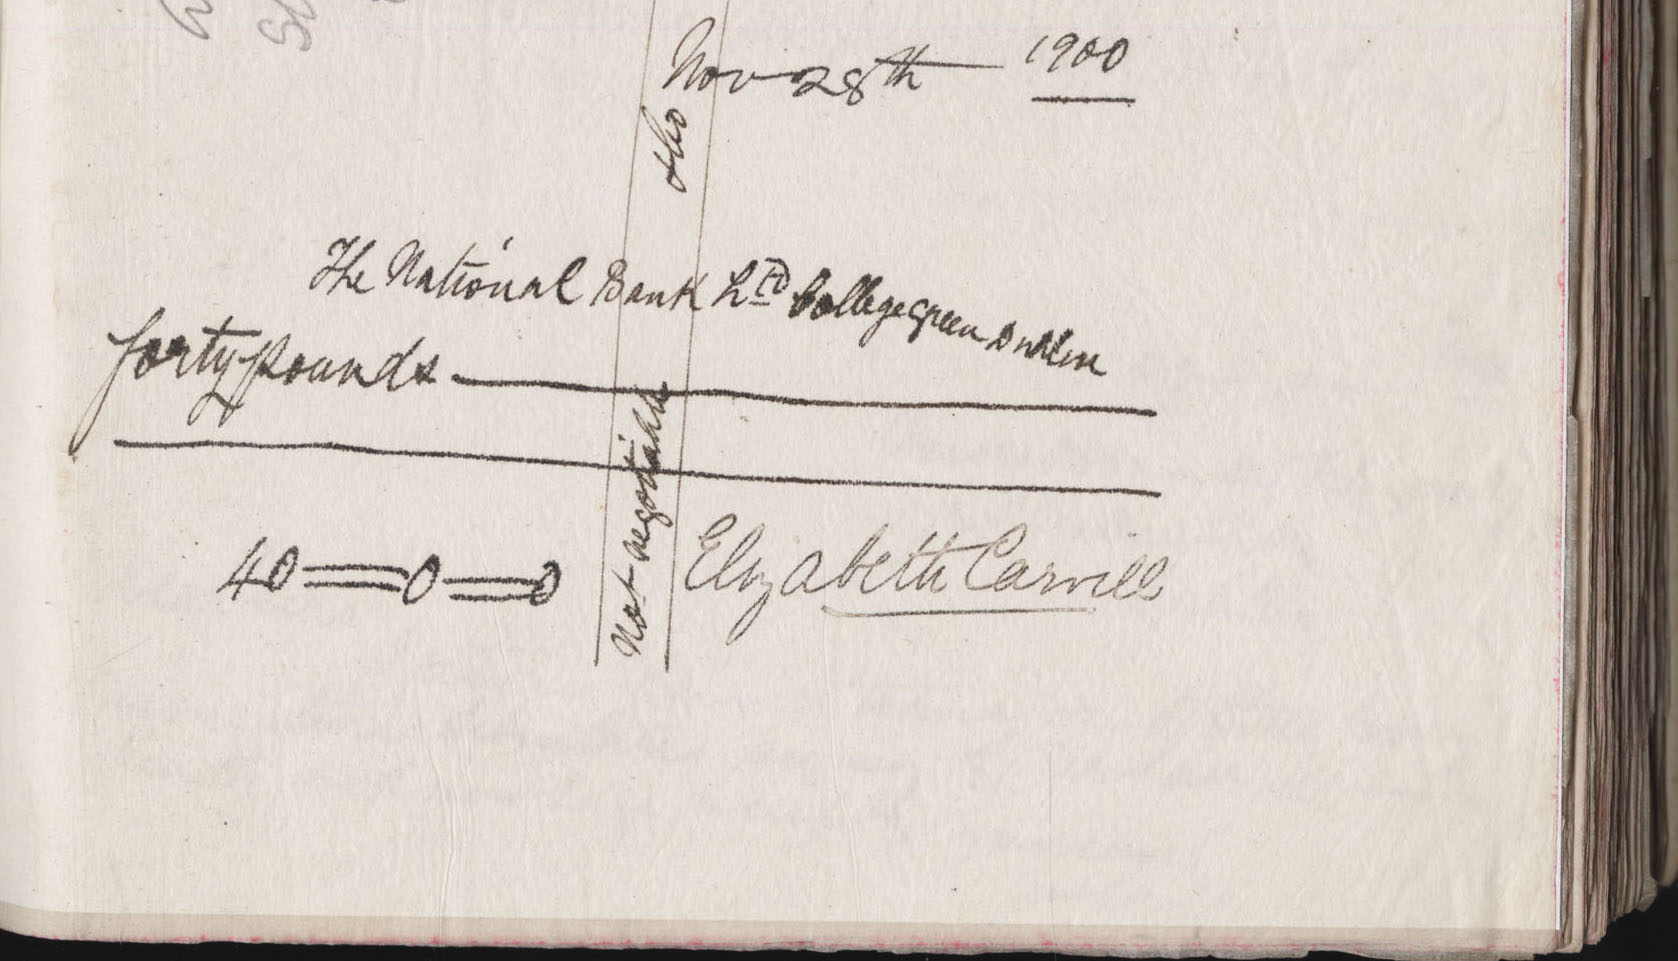 Nov 28th — 1900
&Co
The National Bank Ltd College Green Dublin
forty pounds
40=0=0
Not negotiable
Elizabeth Carvill